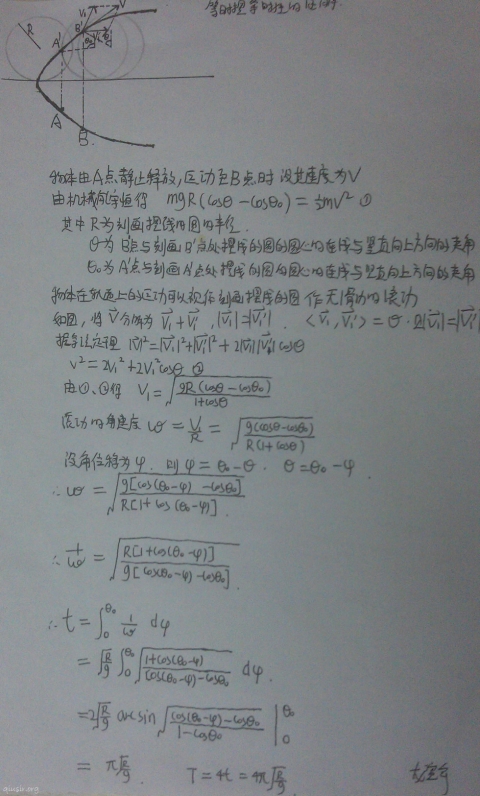 等时摆等时性的证明
R
V₁
V
B'
A'
θ
A
B
物体由A点静止释放,运动至B点时 设其速度为V
由机械能守恒得 mgR(cosθ-cosθ₀)=½mv² ①
其中R为刻画摆线的圆的半径.
θ为B'点与刻画B'点处摆线的圆的圆心的连线与竖直向上方向的夹角
θ₀为A'点与刻画A'点处摆线的圆的圆心的连线与竖直向上方向的夹角
物体在轨道上的运动可以视作刻画摆线的圆 作无滑动的滚动
如图,将V⃗分解为 V⃗₁+V⃗₁', |V⃗₁|=|V⃗₁'|. <V⃗₁,V⃗₁'>=θ.且|V⃗₁|=|V⃗₁'|
据余弦定理 |V⃗|²=|V⃗₁|²+|V⃗₁'|²+2|V⃗₁||V⃗₁'|cosθ
V²=2V₁²+2V₁²cosθ ②
由①、②得 V₁=√(gR(cosθ-cosθ₀)/(1+cosθ))
滚动的角速度 ω=V₁/R=√(g(cosθ-cosθ₀)/(R(1+cosθ)))
设角位移为φ. 则φ=θ₀-θ. θ=θ₀-φ
∴ω=√(g[cos(θ₀-φ)-cosθ₀]/(R[1+cos(θ₀-φ)])).
∴1/ω=√(R[1+cos(θ₀-φ)]/(g[cos(θ₀-φ)-cosθ₀]))
∴t=∫₀^θ₀ 1/ω dφ
=√(R/g)∫₀^θ₀ √((1+cos(θ₀-φ))/(cos(θ₀-φ)-cosθ₀)) dφ.
=2√(R/g) arcsin√((cos(θ₀-φ)-cosθ₀)/(1-cosθ₀)) |₀^θ₀
=π√(R/g) T=4t=4π√(R/g)
qiusir.org